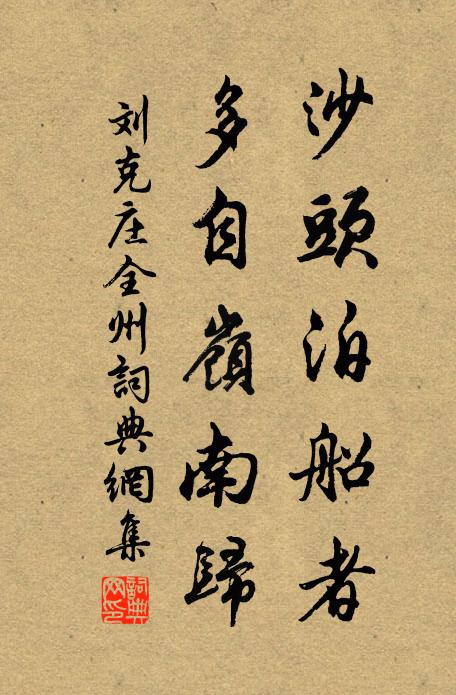 沙頭泊船者
多自嶺南歸
刘克庄全州詞典網集
詞典网印